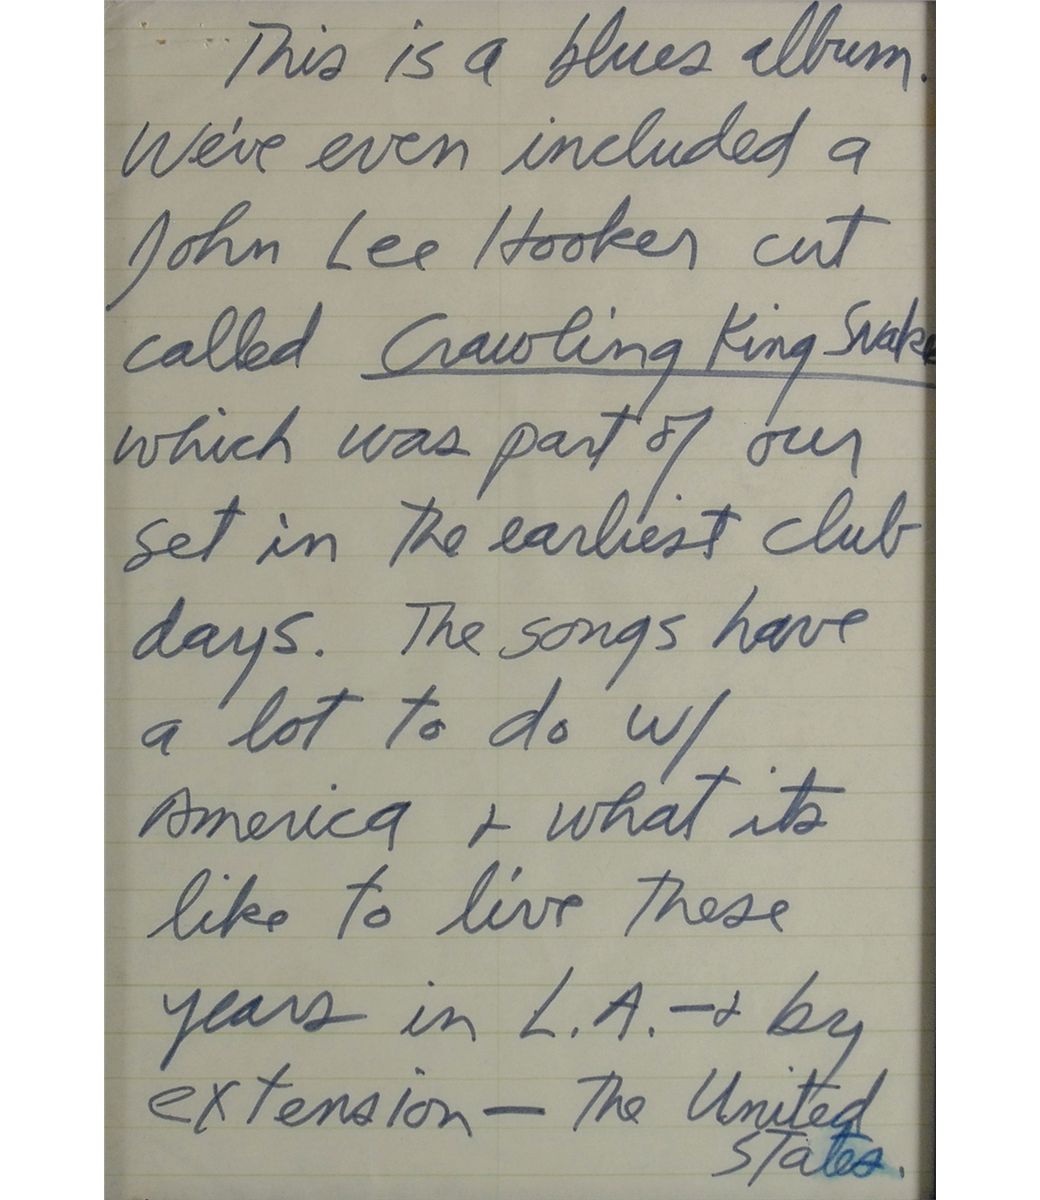 This is a blues album.
We've even included a
John Lee Hooker cut
called Crawling King Snake
which was part of our
set in the earliest club
days. The songs have
a lot to do w/
America & what its
like to live these
years in L.A. — & by
extension — the United
States.